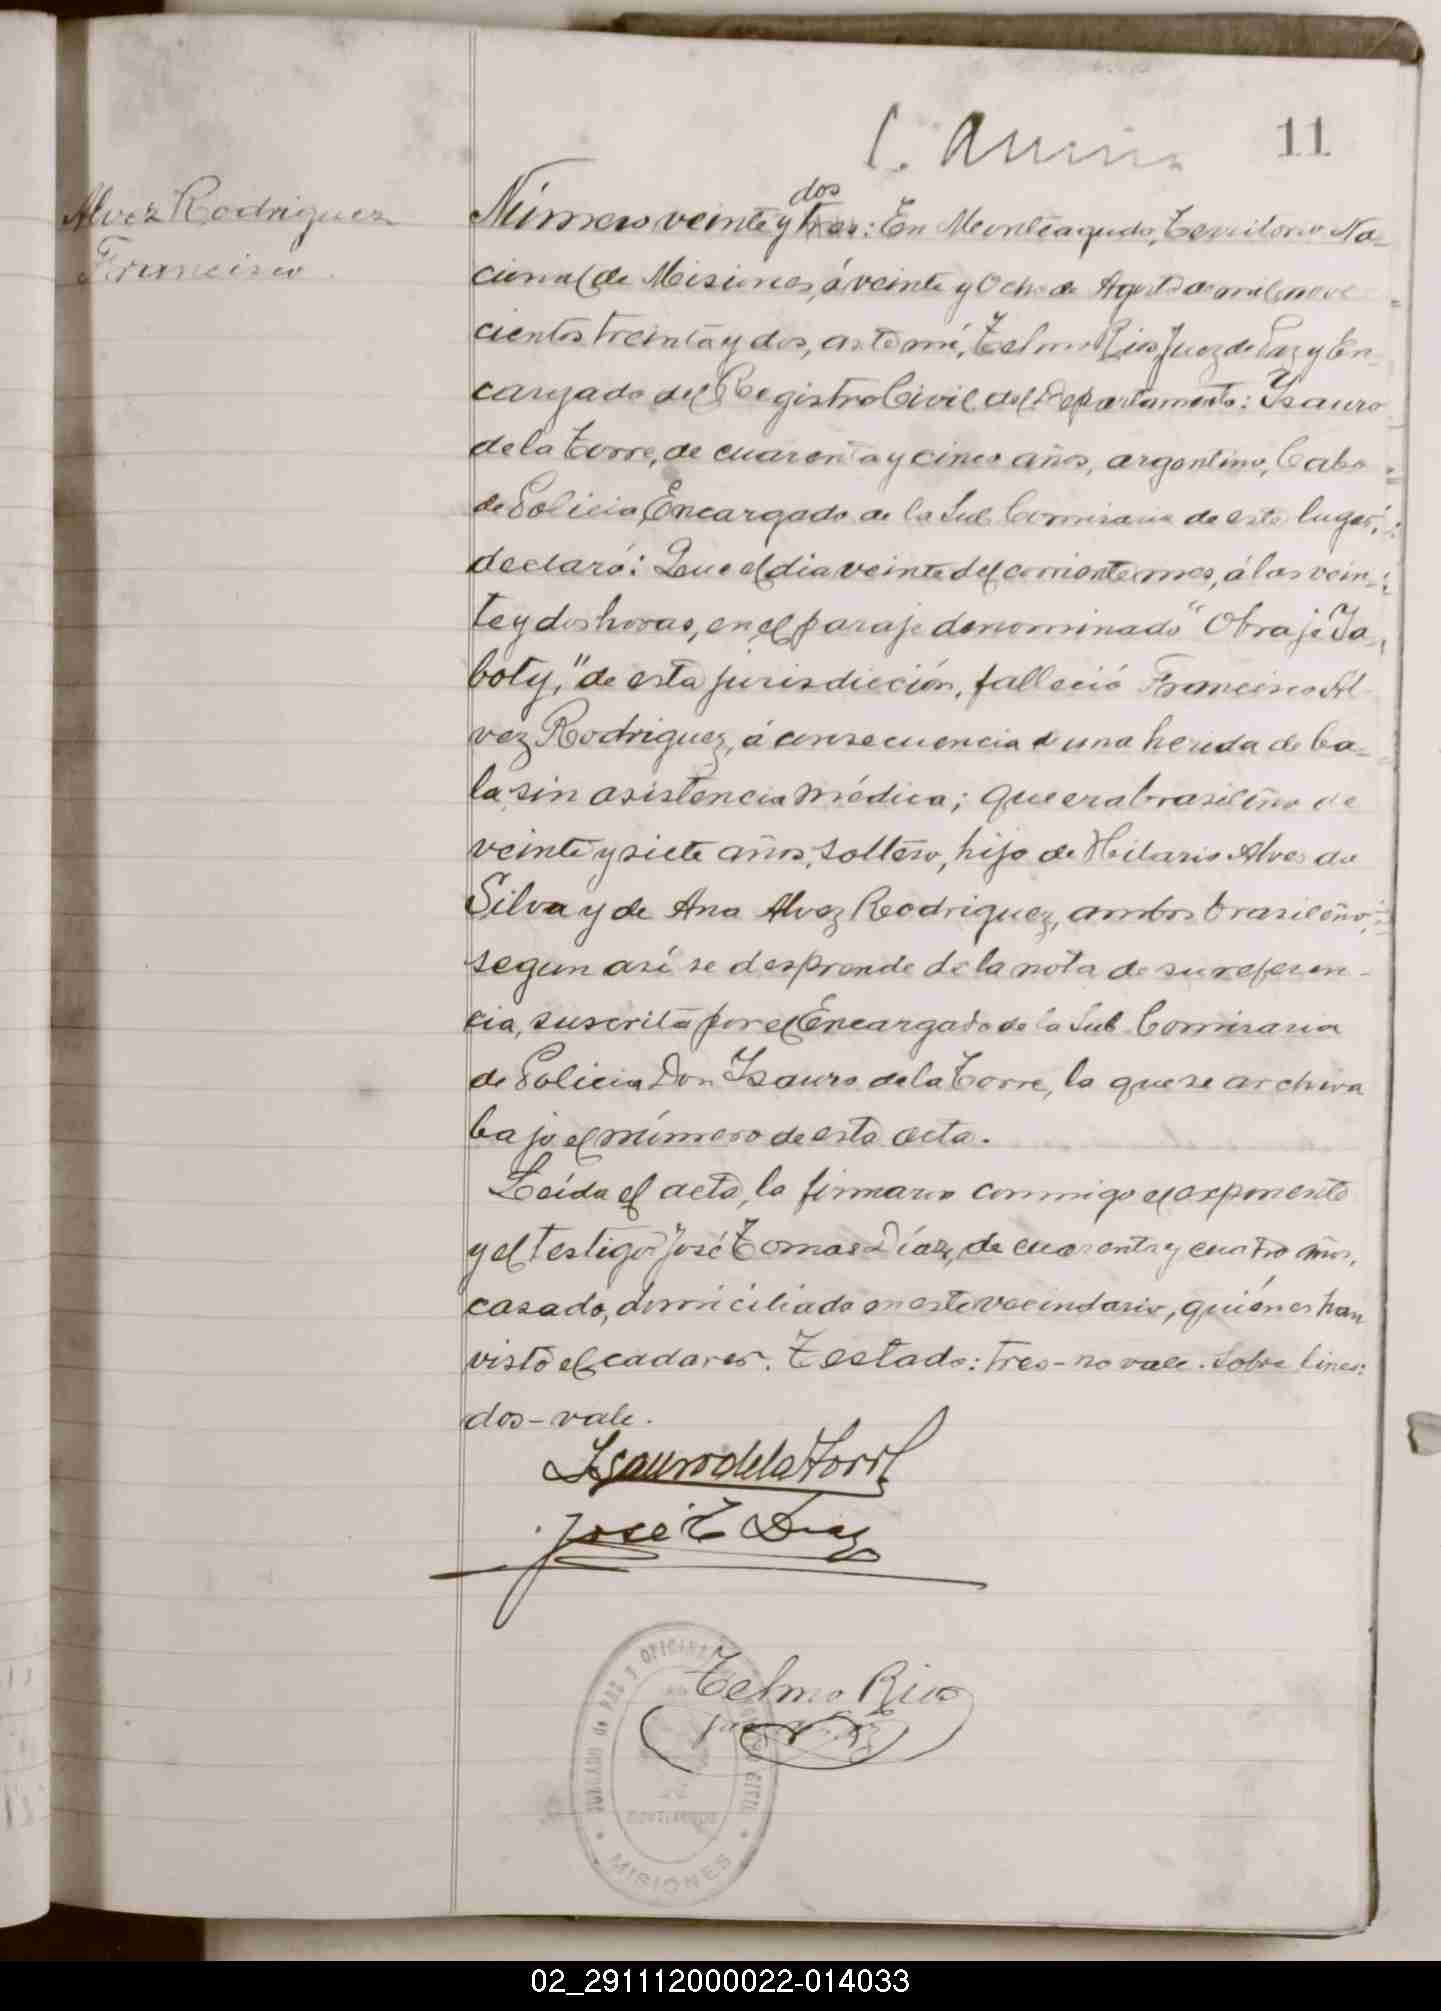 11
Alvez Rodriguez
Francisco.
dos
Número veinte y tres: En Monteagudo, Territorio Na-
cional de Misiones, á veinte y Ocho de Agosto de mil nove
cientos treinta y dos, ante mí, Telmo Rios, Juez de Paz y En-
cargado del Registro Civil del Departamento: Ysauro
de la Torre, de cuarenta y cinco años, argentino, Cabo
de Policia, Encargado de la Sub Comisaria de este lugar,
declaró: Que el dia veinte del corriente mes, á las vein-
te y dos horas, en el paraje denominado "Obraje Ya-
boty," de esta jurisdicción, falleció Francisco Al-
vez Rodriguez, á consecuencia de una herida de ba-
la, sin asistencia médica; que era brasileño de
veinte y siete años, soltero, hijo de Hilario Alves da
Silva y de Ana Alvez Rodriguez, ambos brasileños,
segun así se desprende de la nota de su referen-
cia, suscrita por el Encargado de la Sub Comisaria
de Policia Don Ysauro de la Torre, la que se archiva
bajo el número de esta acta.
Leída el acta, la firmaron conmigo el exponente
y el testigo José Tomas Díaz, de cuarenta y cuatro años,
casado, domiciliado en este vecindario, quiénes han
visto el cadaver. Testado: tres - no vale. Sobre linea:
dos - vale.
Isauro de la Torre
José T Diaz
Telmo Rios
Juez de Paz
MISIONES
02_291112000022-014033